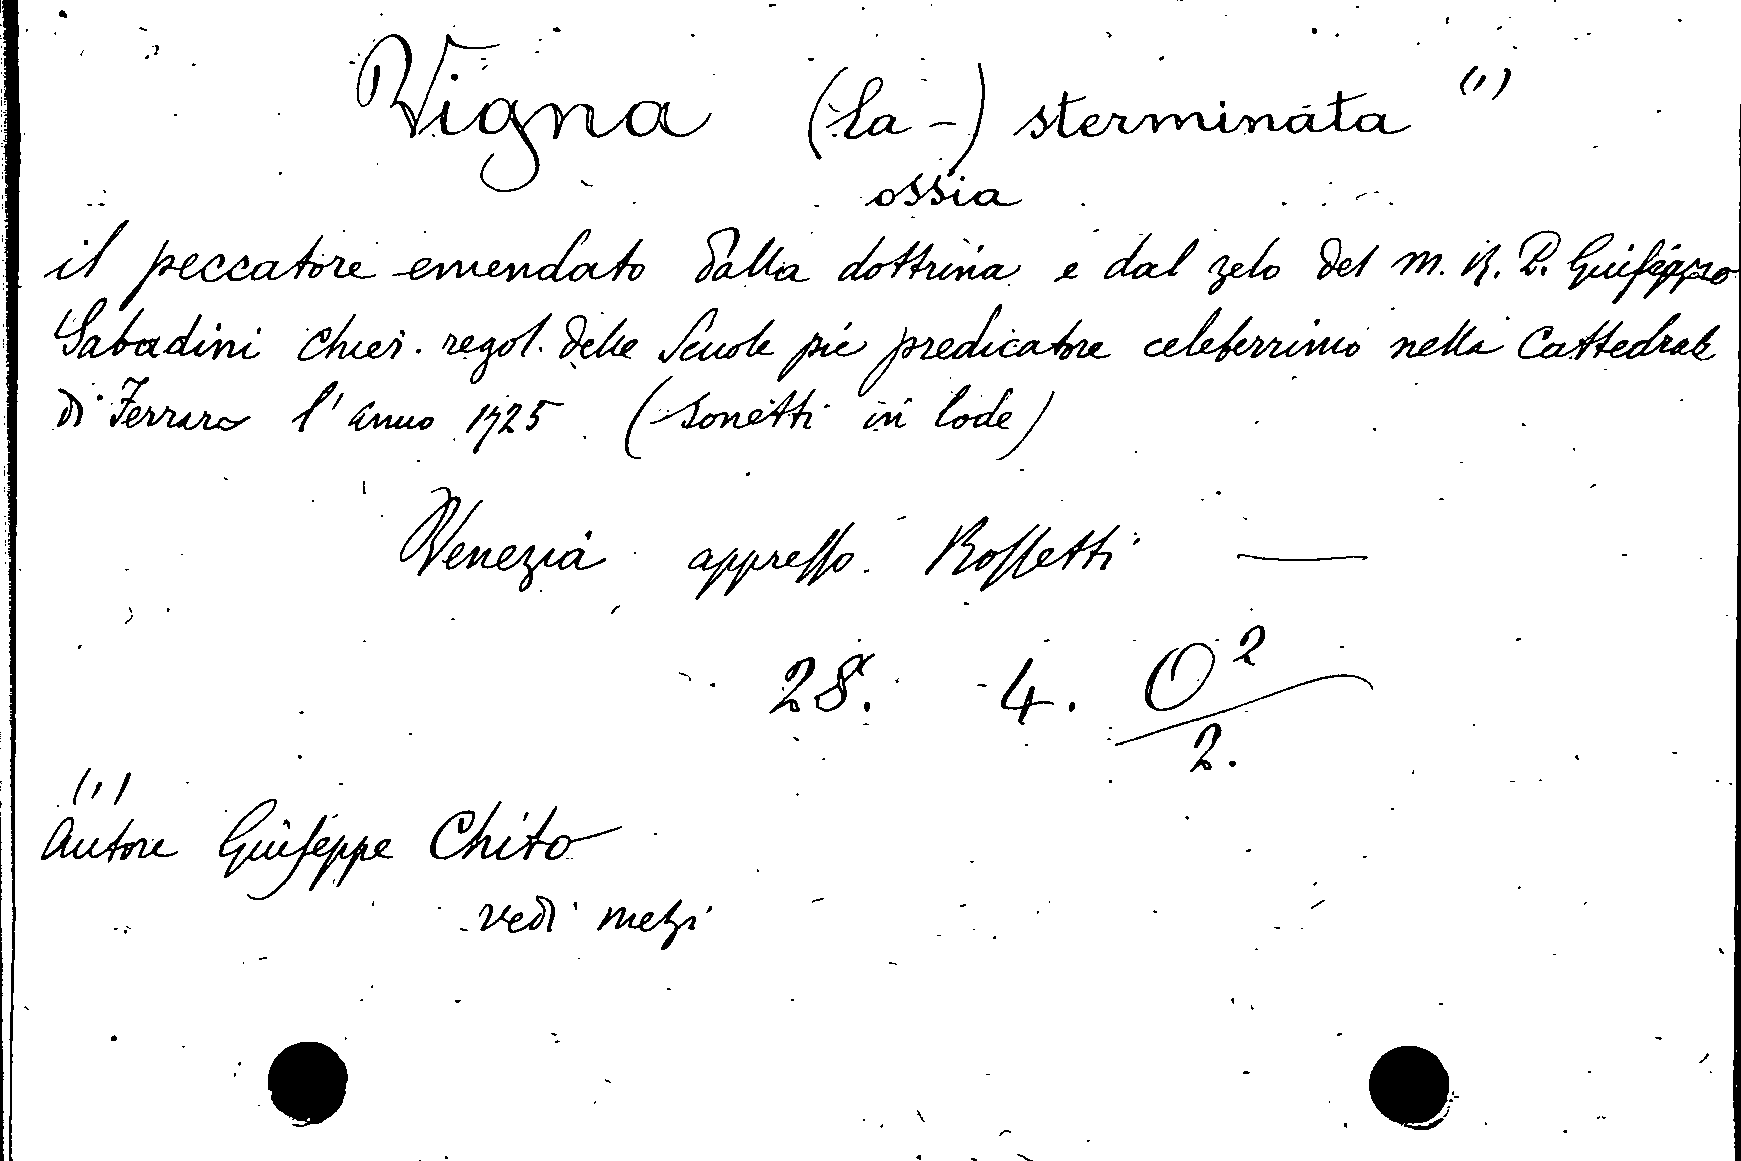 Vigna (La-) sterminata (1)
ossia
il peccatore emendato dalla dottrina e dal zelo del M. R. P. Giuseppe
Sabadini Chier. regol. delle Scuole pie predicatore celeberrimo nella Cattedrale
di Ferrara l'anno 1725 (Sonetti in lode)
Venezia appresso Rossetti —
28. 4. O2/2.
(1)
Autore Giuseppe Chito
vedi Melzi